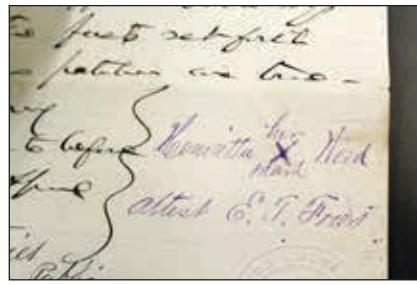 facts set forth
petition are true-
to before
Henrietta her X mark Wood
attest E. T. Frost
Public